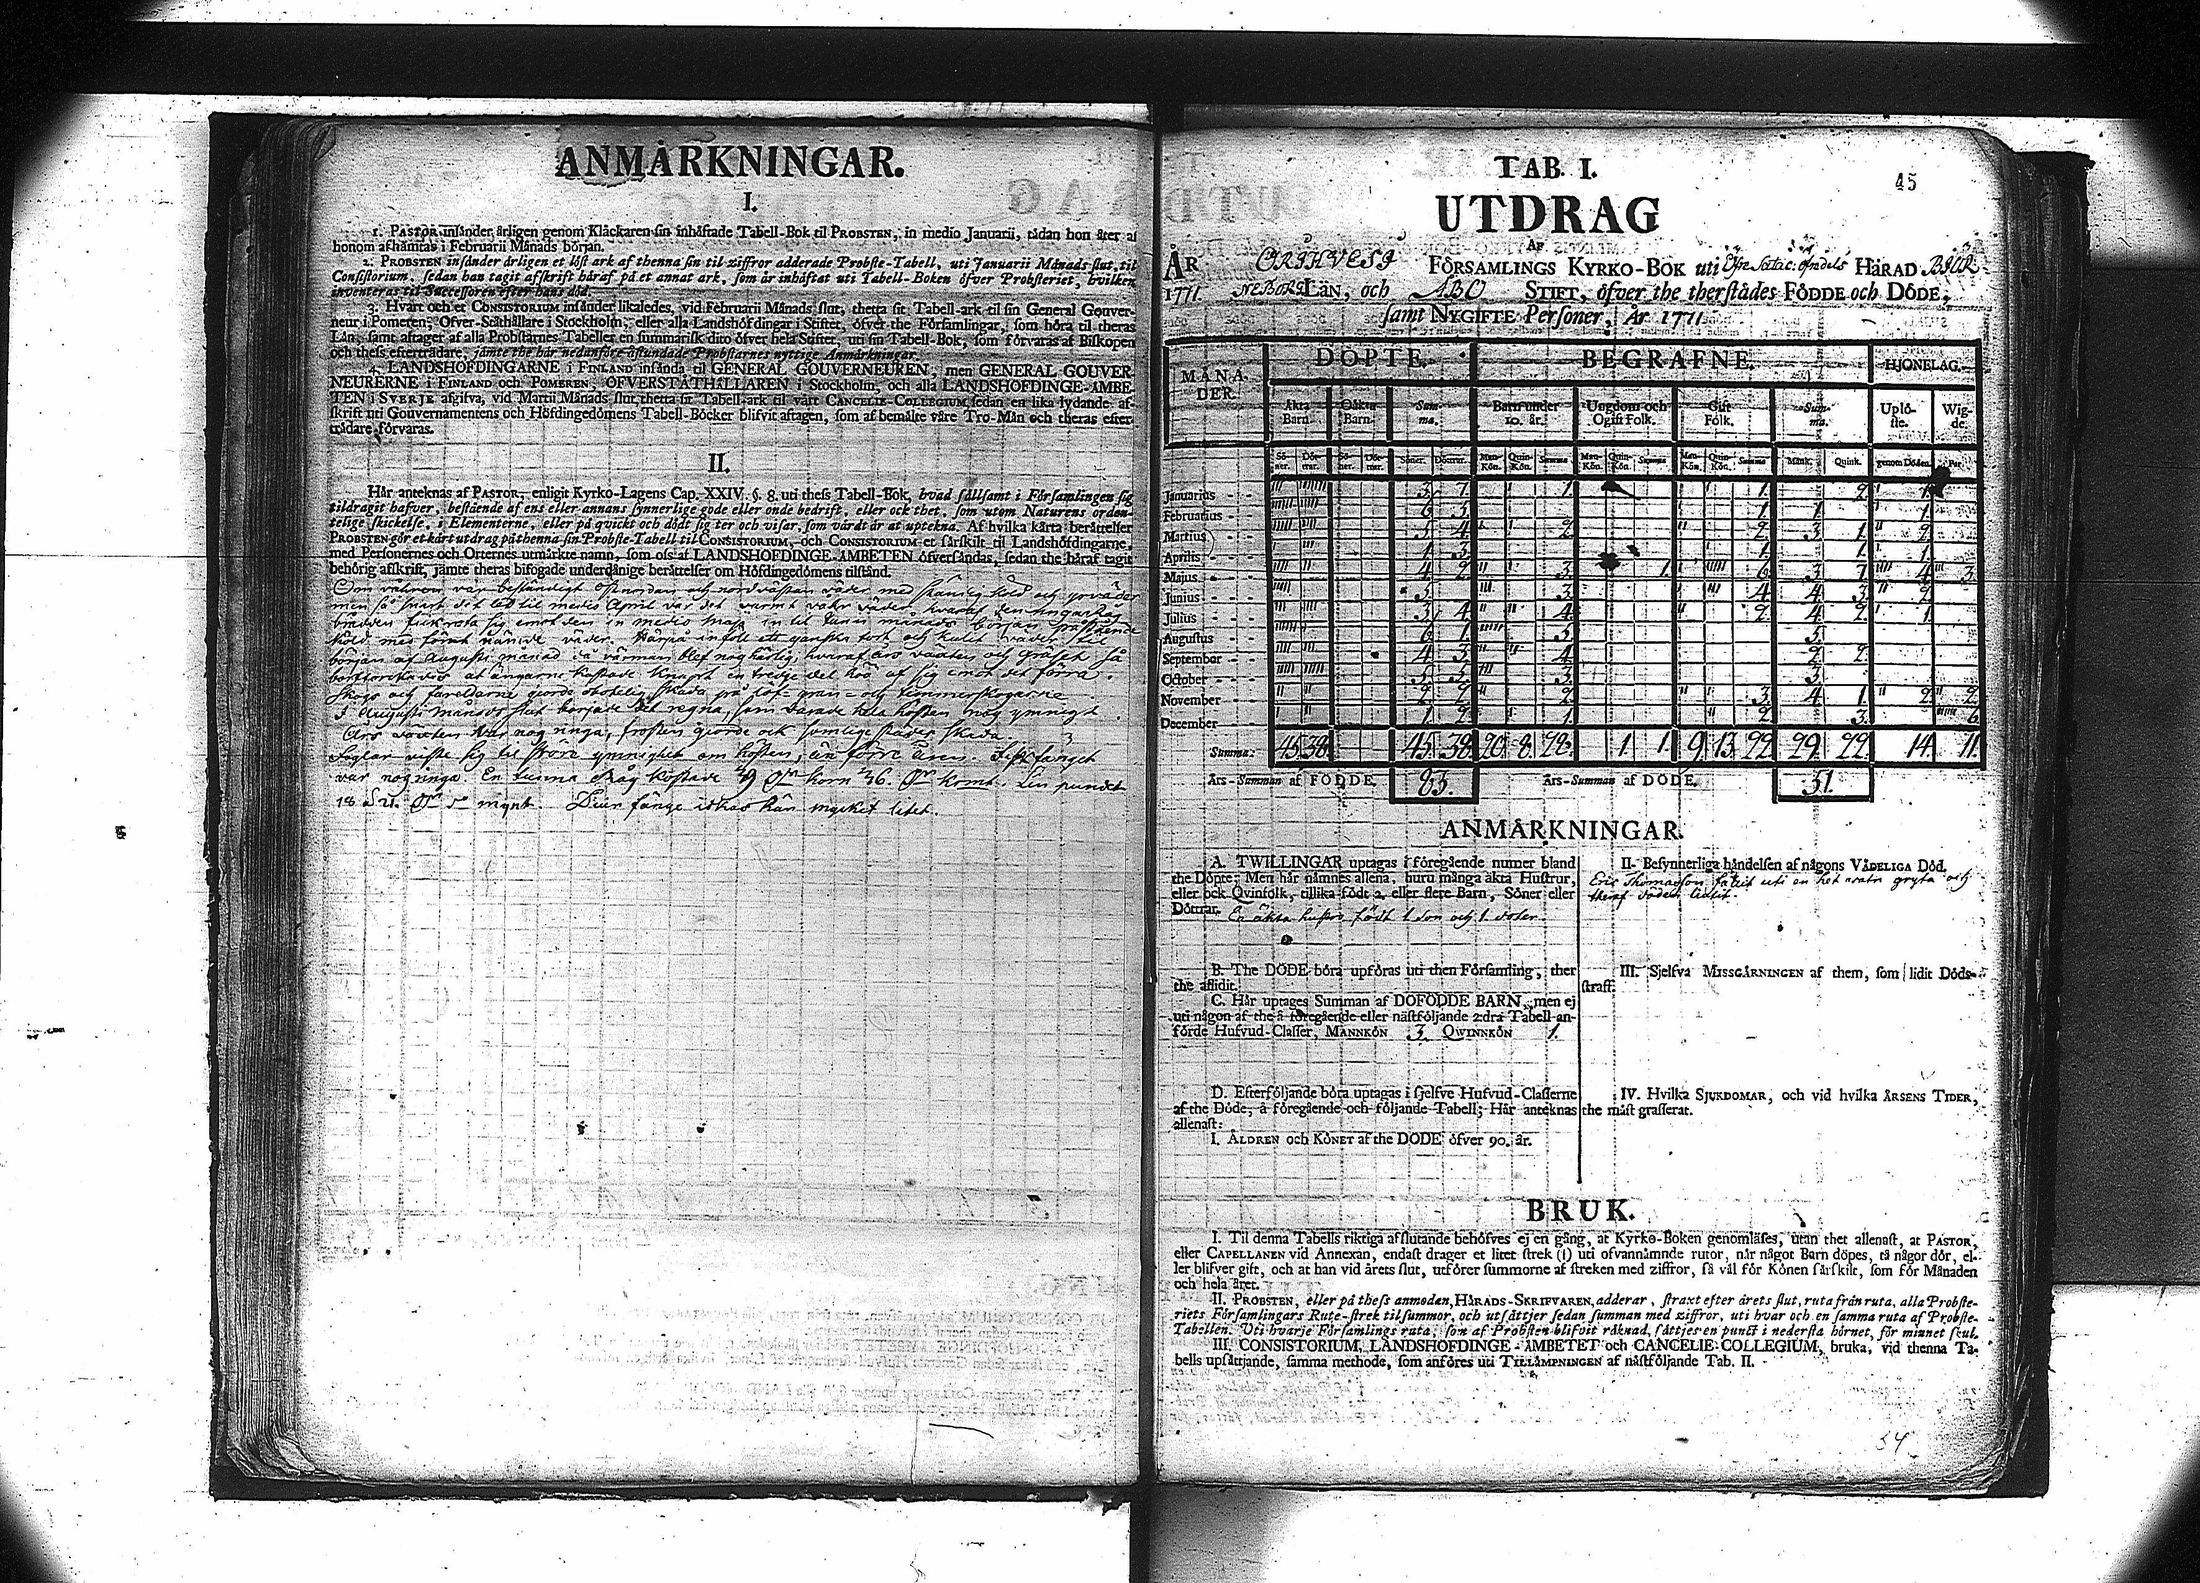 ANMÄRKNINGAR.
I.
1. PASTOR insänder årligen genom Kläckaren sin inhäftade Tabell-Bok til PROBSTEN, in medio Januarii, tådan hon åter af
honom afhämtas i Februarii Månads början.
2. PROBSTEN insänder årligen et löst ark af thenna sin til ziffror adderade Probste-Tabell, uti Januarii Månads slut, til
Consistorium, sedan han tagit afskrift häraf på et annat ark, som är inhäftat uti Tabell-Boken öfver Probsteriet, hvilken
inventeras til Successoren efter hans död.
3. Hvart och et CONSISTORIUM insänder likaledes, vid Februarii Månads slut, thetta sit Tabell-ark til sin General Gouver-
neur i Pomeren, Öfver-Ståthållare i Stockholm, eller alla Landshöfdingar i Stiftet, öfver the Församlingar, som höra til theras
Län, samt aftager af alla Probstarnes Tabeller en summarisk dito öfver hela Stiftet, uti sin Tabell-Bok, som förvaras af Biskopen
och thess efterträdare, jämte the här nedanföre åstundade Probstarnes nyttige Anmärkningar.
4. LANDSHÖFDINGARNE i FINLAND insända til GENERAL GOUVERNEUREN, men GENERAL GOUVER
NEURERNE i FINLAND och POMEREN, ÖFVERSTÅTHÅLLAREN i Stockholm, och alla LANDSHÖFDINGE-ÄMBE-
TEN i SVERJE afgifva, vid Martii Månads slut, thetta sit Tabell-ark til vårt CANCELIE-COLLEGIUM, sedan en lika lydande af-
skrift uti Gouvernamentens och Höfdingedömens Tabell-Böcker blifvit aftagen, som af bemälte våre Tro-Män och theras efter
trädare förvaras.
II.
Här anteknas af PASTOR, enligit Kyrko-Lagens Cap. XXIV. §. 8. uti thess Tabell-Bok, hvad sällsamt i Församlingen sig
tildragit hafver, bestående af ens eller annans synnerlige gode eller onde bedrift, eller ock thet, som utom Naturens orden-
telige skickelse, i Elementerne, eller på quickt och dödt sig ter och visar, som värdt är at uptekna. Af hvilka kårta berättelser
PROBSTEN gör et kårt utdrag på thenna sin Probste-Tabell til CONSISTORIUM, och CONSISTORIUM et särskilt til Landshöfdingarne,
med Personernes och Orternes utmärkte namn, som oss af LANDSHÖFDINGE-ÄMBETEN öfversändas, sedan the häraf tagit
behörig afskrift, jämte theras bifogade underdånige berättelser om Höfdingedömens tilstånd.
Om våhren var beständigt Nordan och nordvästan väder med ständig köld och
men så snart det led til medio April var det varmt vahr väder, hvaraf den
emot den in medio Maji in til Junii månads början
köld med nämde väder. Härpå inföll ett ganska tort och kulit väder til
början af Augusti månad då värman blef nog häftig, hvaraf års växten och gräset så
at ängarne kastade knapt en tredje del höö af sig emot det förra.
Skogs och giorde otrolig skada på löf- gran- och timmerskogarne
I Augusti månads slut började det regna, som varade hela hösten nog ymnigt
Års växten var nog ringa, frosten giorde ock somlige städer skada.
Foglar viste sig til större ymnighet om hösten, än förre åren. Fiskfänget
var nog ringa. En tunna Råg kostade 39 korn 36. Kmt. Lin pundet
18 á 21. mynt. Diur fänge idkas här mycket litet.
TAB. I. 45
UTDRAG
AF
ÅR ORIHVESI FÖRSAMLINGS KYRKO-BOK uti HÄRAD BIÖR
1771. NEBORG LÄN, och ABO STIFT, öfver the therstädes FÖDDE och DÖDE,
samt NYGIFTE Personer, År 1771
DÖPTE. BEGRAFNE. HJONELAG.
MÅNA-
DER.
Äkta
Barn. Oäkta
Barn. Sum-
ma. Barn under
10. år. Ungdom och
Ogift Folk. Gift
Folk. Sum-
ma. Uplö-
ste. Wig-
de.
Sö-
ner. Döt-
trar. Sö-
ner. Döt-
trar. Söner. Döttrar. Man-
Kön. Quin-
Kön. Summa Man-
Kön. Quin-
Kön. Summa Man-
Kön. Quin-
Kön. Summa Mank. Quink. genom Döden. Par.
Januarius 3. 7. 1. 1. 2. 1.
Februarius 6. 3. 1. 1. 1. 1.
Martius 5. 4. 2. 2. 3. 1. 2.
Aprilis 1. 3. 1. 1. 1.
Majus 4. 2. 3. 1. 6. 3. 7. 4. 3.
Junius 5. 3. 4. 4. 3. 2.
Julius 3. 4. 4. 2. 4. 2. 1.
Augustus 6. 1. 5. 5.
September 4. 3. 4. 2. 2.
October 5. 5. 3. 3.
November 2. 2. 2. 3. 4. 1. 2. 2.
December 1. 2. 1. 2. 3. 6.
Summa: 45. 38. 45. 38. 20. 8. 28. 1 1. 9. 13. 22. 29. 22. 14. 11.
Års-Summan af FÖDDE. 83. Års-Summan af DÖDE. 51.
ANMÄRKNINGAR.
A. TWILLINGAR uptagas i föregående numer bland
the Döpte: Men här nämnes allena, huru många äkta Hustrur,
eller ock Qvinfolk, tillika födt 2. eller flere Barn, Söner eller
Döttrar. En äkta hustru födt 1 son och 1. doter.
B. The DÖDE böra upföras uti then Församling, ther
the aflidit.
C. Här uptages Summan af DÖFÖDDE BARN, men ej
uti någon af the å föregående eller nästföljande 2:dra Tabell an-
förde Hufvud-Classer, MANNKÖN 3. QWINNKÖN 1.
D. Efterföljande böra uptagas i sjelfve Hufvud-Classerne
af the Döde, å föregående och följande Tabell; Här anteknas
allenast:
I. ÅLDREN och KÖNET af the DÖDE öfver 90. år.
II. Besynnerliga händelsen af någons VÅDELIGA Död.
Eric Thomasson fallit uti en het vatn gryta och
theraf döden lidit.
III. Sjelfva MISSGÄRNINGEN af them, som lidit Döds-
straff.
IV. Hvilka SJUKDOMAR, och vid hvilka ÅRSENS TIDER,
the mäst grasserat.
BRUK.
I. Til denna Tabells riktiga afslutande behöfves ej en gång, at Kyrko-Boken genomläses, utan thet allenast, at PASTOR,
eller CAPELLANEN vid Annexan, endast drager et litet strek (|) uti ofvannämnde rutor, når något Barn döpes, tå någor dör, el-
ler blifver gift, och at han vid årets slut, utförer summorne af streken med ziffror, så väl för Könen särskilt, som för Månaden
och hela året.
II. PROBSTEN, eller på thess anmodan, HÄRADS-SKRIFVAREN, adderar, straxt efter årets slut, ruta från ruta, alla Probste-
riets Församlingars Rute-strek tilsummor, och utsättjer sedan summan med ziffror, uti hvar och en samma ruta af Probste-
Tabellen. Uti hvarje Församlings ruta, som af Probsten blifvit räknad, sättjes en punct i nedersta hörnet, för minnet skul.
III. CONSISTORIUM, LANDSHÖFDINGE-ÄMBETET och CANCELIE-COLLEGIUM, bruka, vid thenna Ta-
bells upsättjande, samma methode, som anföres uti TILLÄMPNINGEN af nästföljande Tab. II.
54